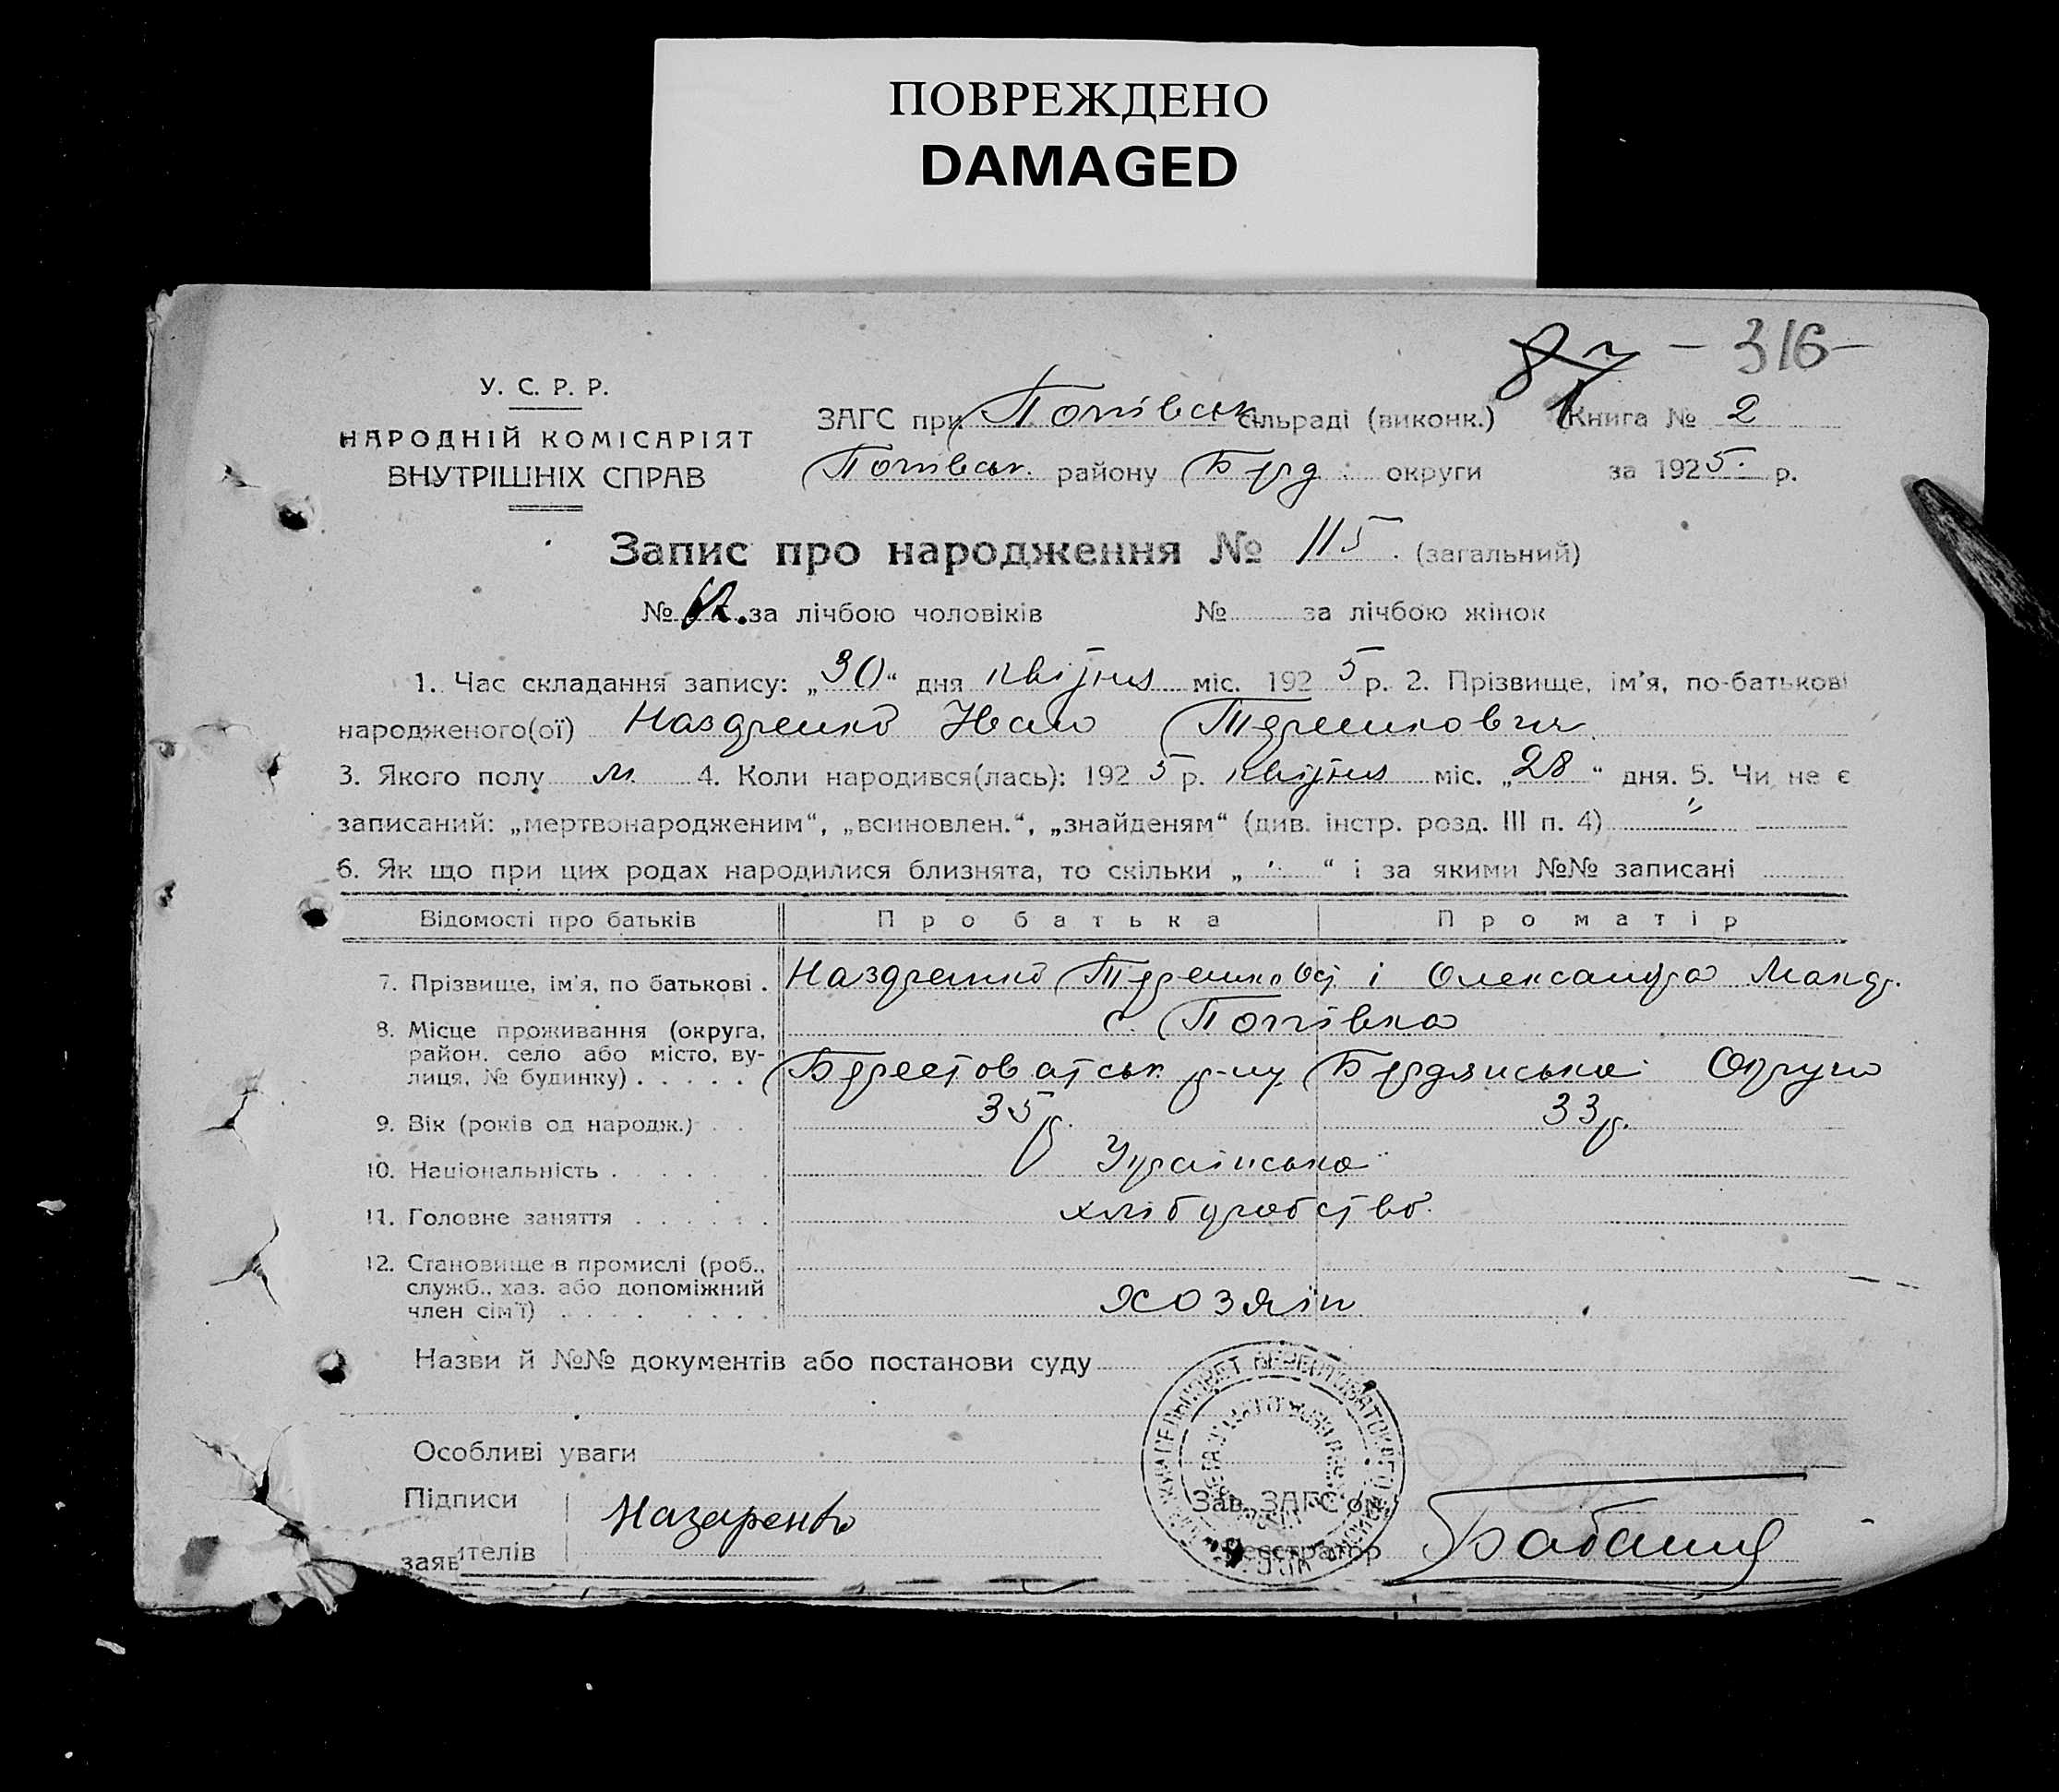 ПОВРЕЖДЕНО
DAMAGED
- 316 -
У. С. Р. Р.
НАРОДНІЙ КОМІСАРІЯТ
ВНУТРІШНІХ СПРАВ
ЗАГС при Попівськ. сільраді (виконк.) Книга № 2
Попівськ. району Берд. округи за 1925. р.
Запис про народження № 115. (загальний)
№ за лічбою чоловіків № за лічбою жінок
1. Час складання запису: „30“ дня квітня міс. 1925 р. 2. Прізвище, ім'я, по-батькові
народженого(ої) Наздренко Іван
3. Якого полу м. 4. Коли народився(лась): 1925 р. квітня міс. „28“ дня. 5. Чи не є
записаний: „мертвонародженим“, „всиновлен.“, „знайденям“ (див. інстр. розд. III п. 4) "
6. Як що при цих родах народилися близнята, то скільки „ “ і за якими №№ записані
Відомості про батьків Про батька Про матір
7. Прізвище, ім'я, по батькові . Наздренко і Олександра
8. Місце проживання (округа, с. Попівка
район, село або місто, ву-
лиця, № будинку) . . . . . Берестоватськ. р-ну Бердянська Округа
9. Вік (років од народж.) . . 35 р. 33 р.
10. Національність . . . . . Українська
11. Головне заняття . . . . . . хліборобство.
12. Становище в промислі (роб.,
служб., хаз. або допоміжний
член сім'ї) . . . . . . . хозяін
Назви й №№ документів або постанови суду
Особливі уваги
Підписи Назаренко
заявителів
Зав. ЗАГС'ом
Реєстратор